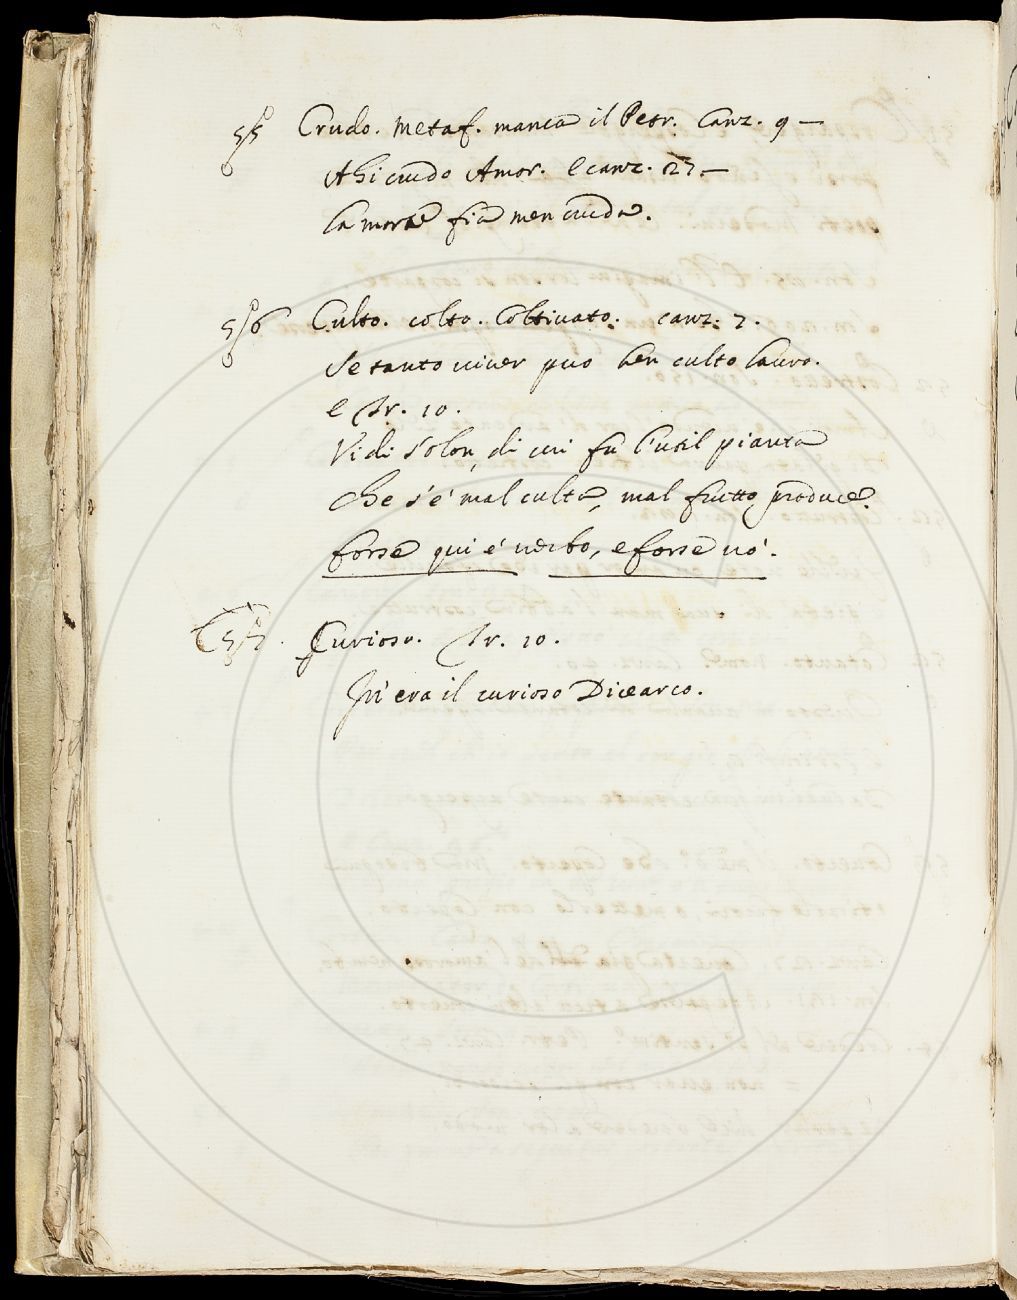 55 Crudo. metaf. manca il Petr. Canz. 9 —
Ahi crudo Amor. e canz. 27 —
La morte fia men cruda.
56 Culto. colto. Coltivato. canz. 7.
Se tanto viver puo ben culto lauro.
e Tr. 10.
Vidi Solon, di cui fu l'util pianta
Che s'è mal culta, mal frutto produce.
forse qui è verbo, e forse nò.
57. Curioso. Tr. 10.
Ivi era il curioso Dicearco.